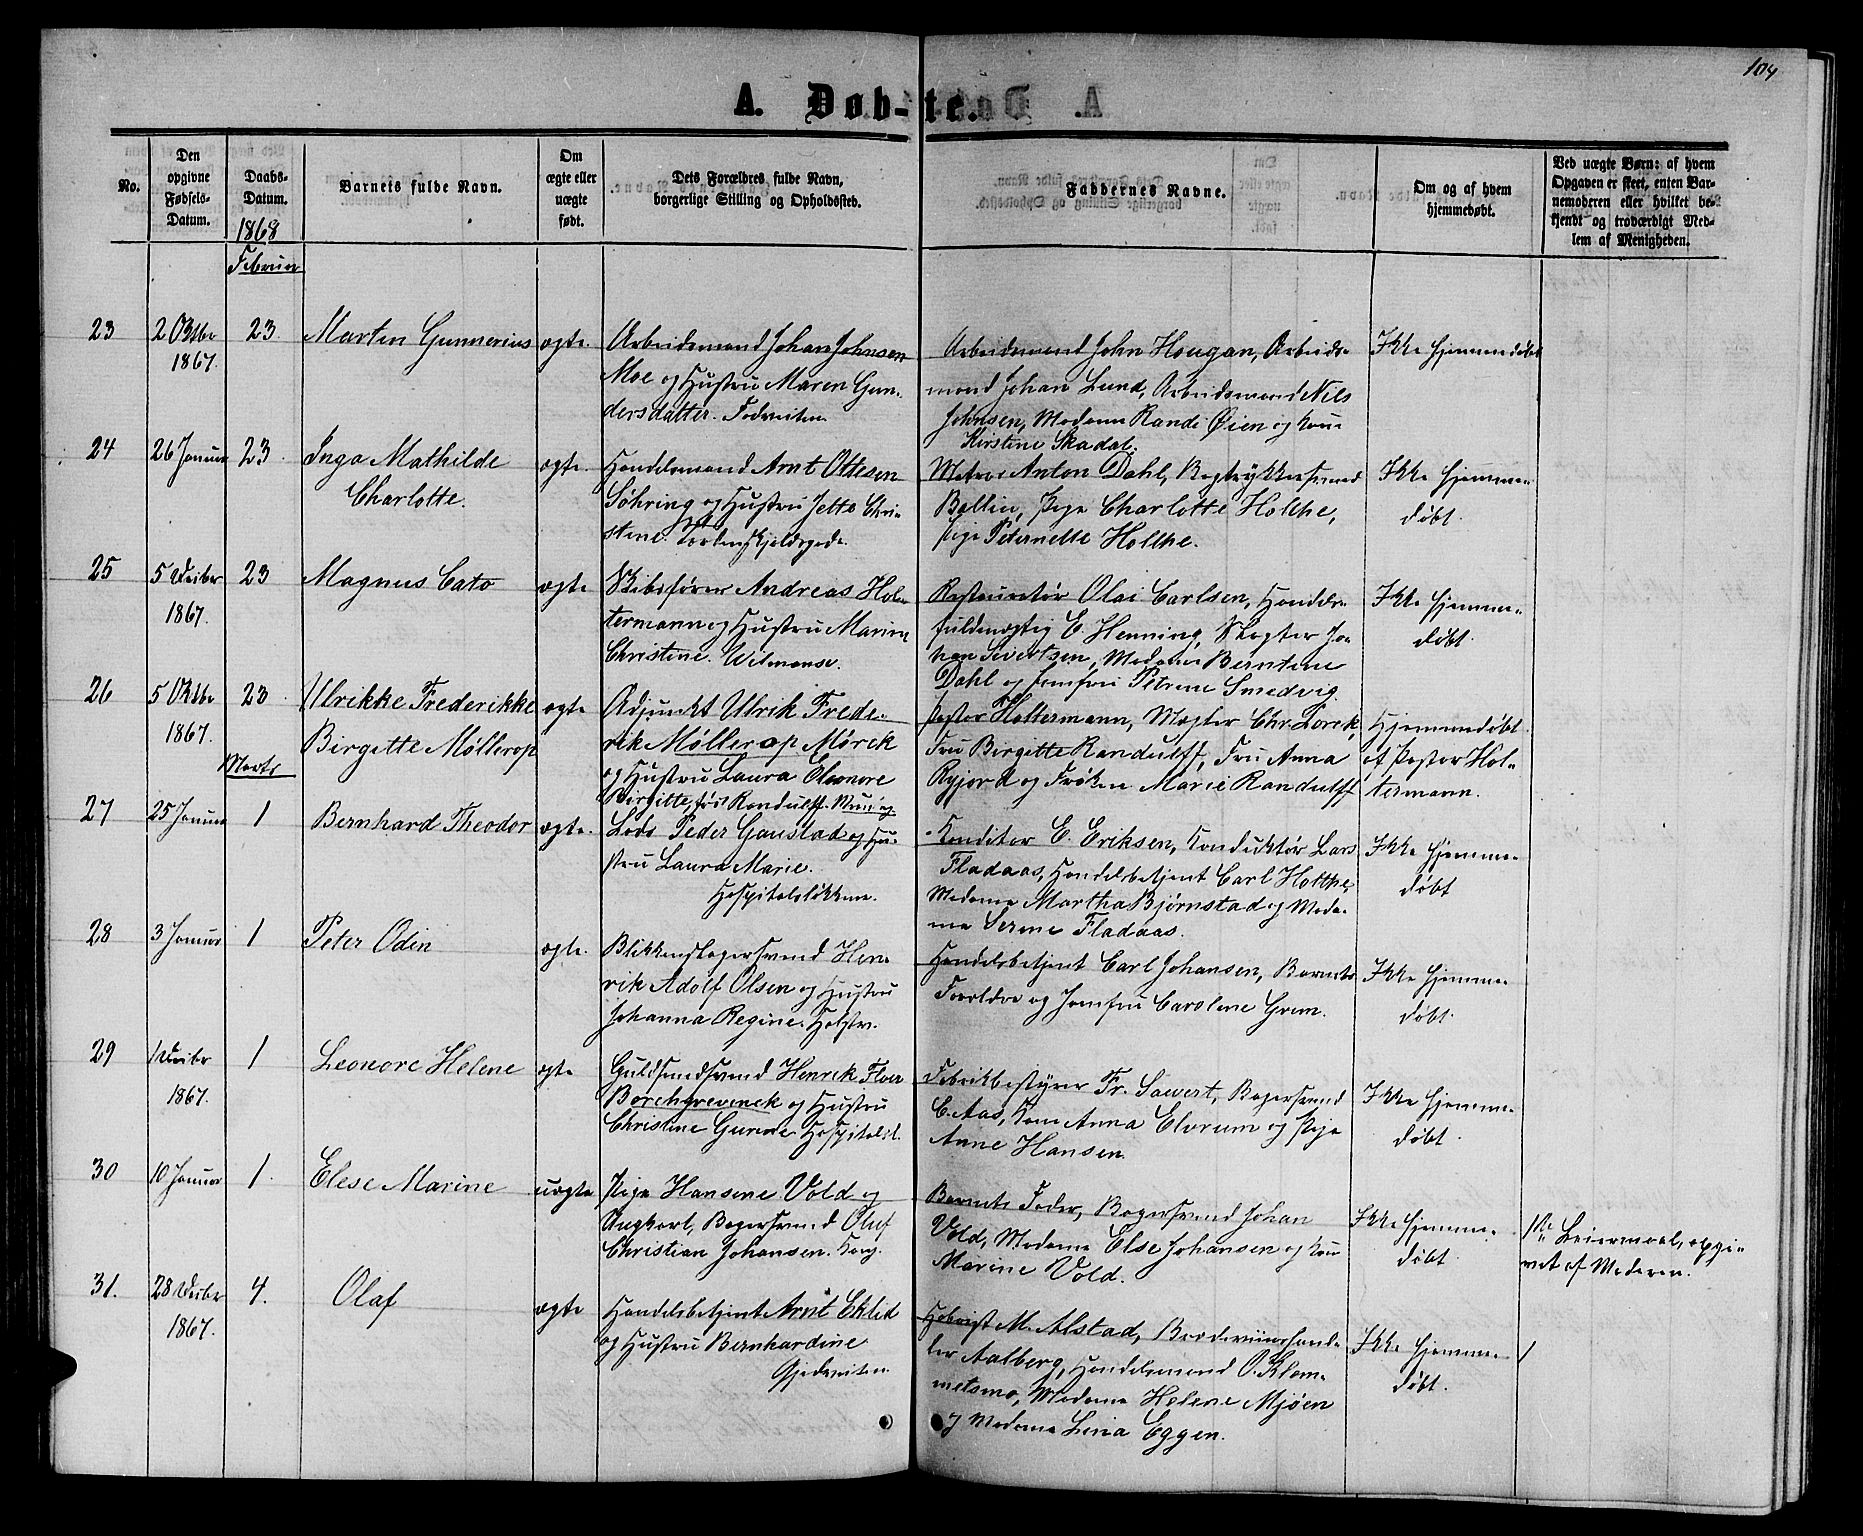 104
A. Døb-te.
No.
Den
opgivne
Fødsels-
Datum.
Daabs-
Datum.
1868
Februar
Barnets fulde Navn.
Om
ægte eller
uægte
født.
Dets Forældres fulde Navn,
borgerlige Stilling og Opholdssted.
Faddernes Navne.
Om og af hvem
hjemmedøbt.
Ved uægte Børn: af hvem
Opgaven er skeet, enten Bar-
nemoderen eller hvilket be-
kjendt og troværdigt Med-
lem af Menigheden.
23
2 Oktbr
1867.
23
Martin Gunnerius
ægte.
Arbeidsmand Johan Johnsen
Moe og Hustru Maren Gun-
dersdatter.
Arbeidsmand John Hougan, Arbeids-
mand Johan Lund, Arbeidsmand Nils
Johnsen, Madame Randi Øien og Kone
Kirstine Skadal.
Ikke hjemmedøbt
24
26 Januar
23
Inga Mathilde
Charlotte.
ægte.
Handelsmand Arnt Ottesen
Søhring og Hustru Jette Chri-
stine.
Anton Dahl, Bogtrykkersvend
Ballin, Pige Charlotte Holthe,
Pige Peternelle Holthe.
Ikke hjemme-
døbt.
25
5 Decbr
1867.
23
Magnus Cato
ægte
Skibsfører Andreas Hol-
termann og Hustru Marine
Christine.
Restauratør Olai Carlsen, Handels-
fuldmægtig E. Henning, Slagter Jo-
han Sivertsen, Madame Berntine
Dahl og Jomfru Petrine Smedvig.
Ikke hjemme-
døbt.
26
5 Oktbr
1867.
23
Ulrikke Frederikke
Birgitte Møllerop
ægte
Adjunkt Ulrik Frede-
rik Møllerop Mörck
og Hustru Laura Eleonore
Birgitte, født Randulff.
Pastor Holtermann, Mægler Chr. Lorck,
Fru Birgitte Randulff, Fru Anna
Ryjord og Frøken Marie Randulff
Hjemmedøbt
af Pastor Hol-
termann.
Marts
27
25 Januar
1
Bernhard Theodor
ægte.
Lods Peder Gaustad og Hu-
stru Laura Marie.
Hospitalsløkkene.
Konditor E. Eriksen, Konduktør Lars
Fladaas, Handelsbetjent Carl Holthe,
Madame Martha Bjørnstad og Mada-
me Serine Fladaas.
Ikke hjemme-
døbt
28
3 Januar
1
Peter Odin
ægte.
Blikkenslagersvend Hen-
rik Adolf Olsen og Hustru
Johanna Regine.
Handelsbetjent Carl Johansen, Barnets
Forældre og Jomfru Caroline Grim.
Ikke hjemme-
døbt.
29
1 Decbr
1867.
1
Leonore Helene
ægte
Guldsmedsvend Henrik Floer
Borchgrevinck og Hustru
Christine Gurine. Hospitalsl.
Fabrikbestyrer Fr. Sawert, Bagersvend
C. Aas, Kone Anna Elvrum og Pige
Anne Hansen.
Ikke hjemme-
døbt.
30
10 Januar
1.
Elese Marine
uægte
Pige Hansine Vold og
Ungkarl, Bagersvend Oluf
Christian Johansen.
Barnets Fader, Bagersvend Johan
Vold, Madame Else Johansen og Kone
Marine Vold.
Ikke hjemme-
døbt
1ste Leiermaal, opgi-
vet af Moderen.
31.
28 Decbr
1867.
4.
Olaf
ægte
Handelsbetjent Arnt Eklid
og Hustru Bernhardine
M. Alstad,
Aalberg, Handelsmand O. Klom-
metsmo, Madame Helene Mjøen
og Madame Lina Eggen.
Ikke hjemme-
døbt.